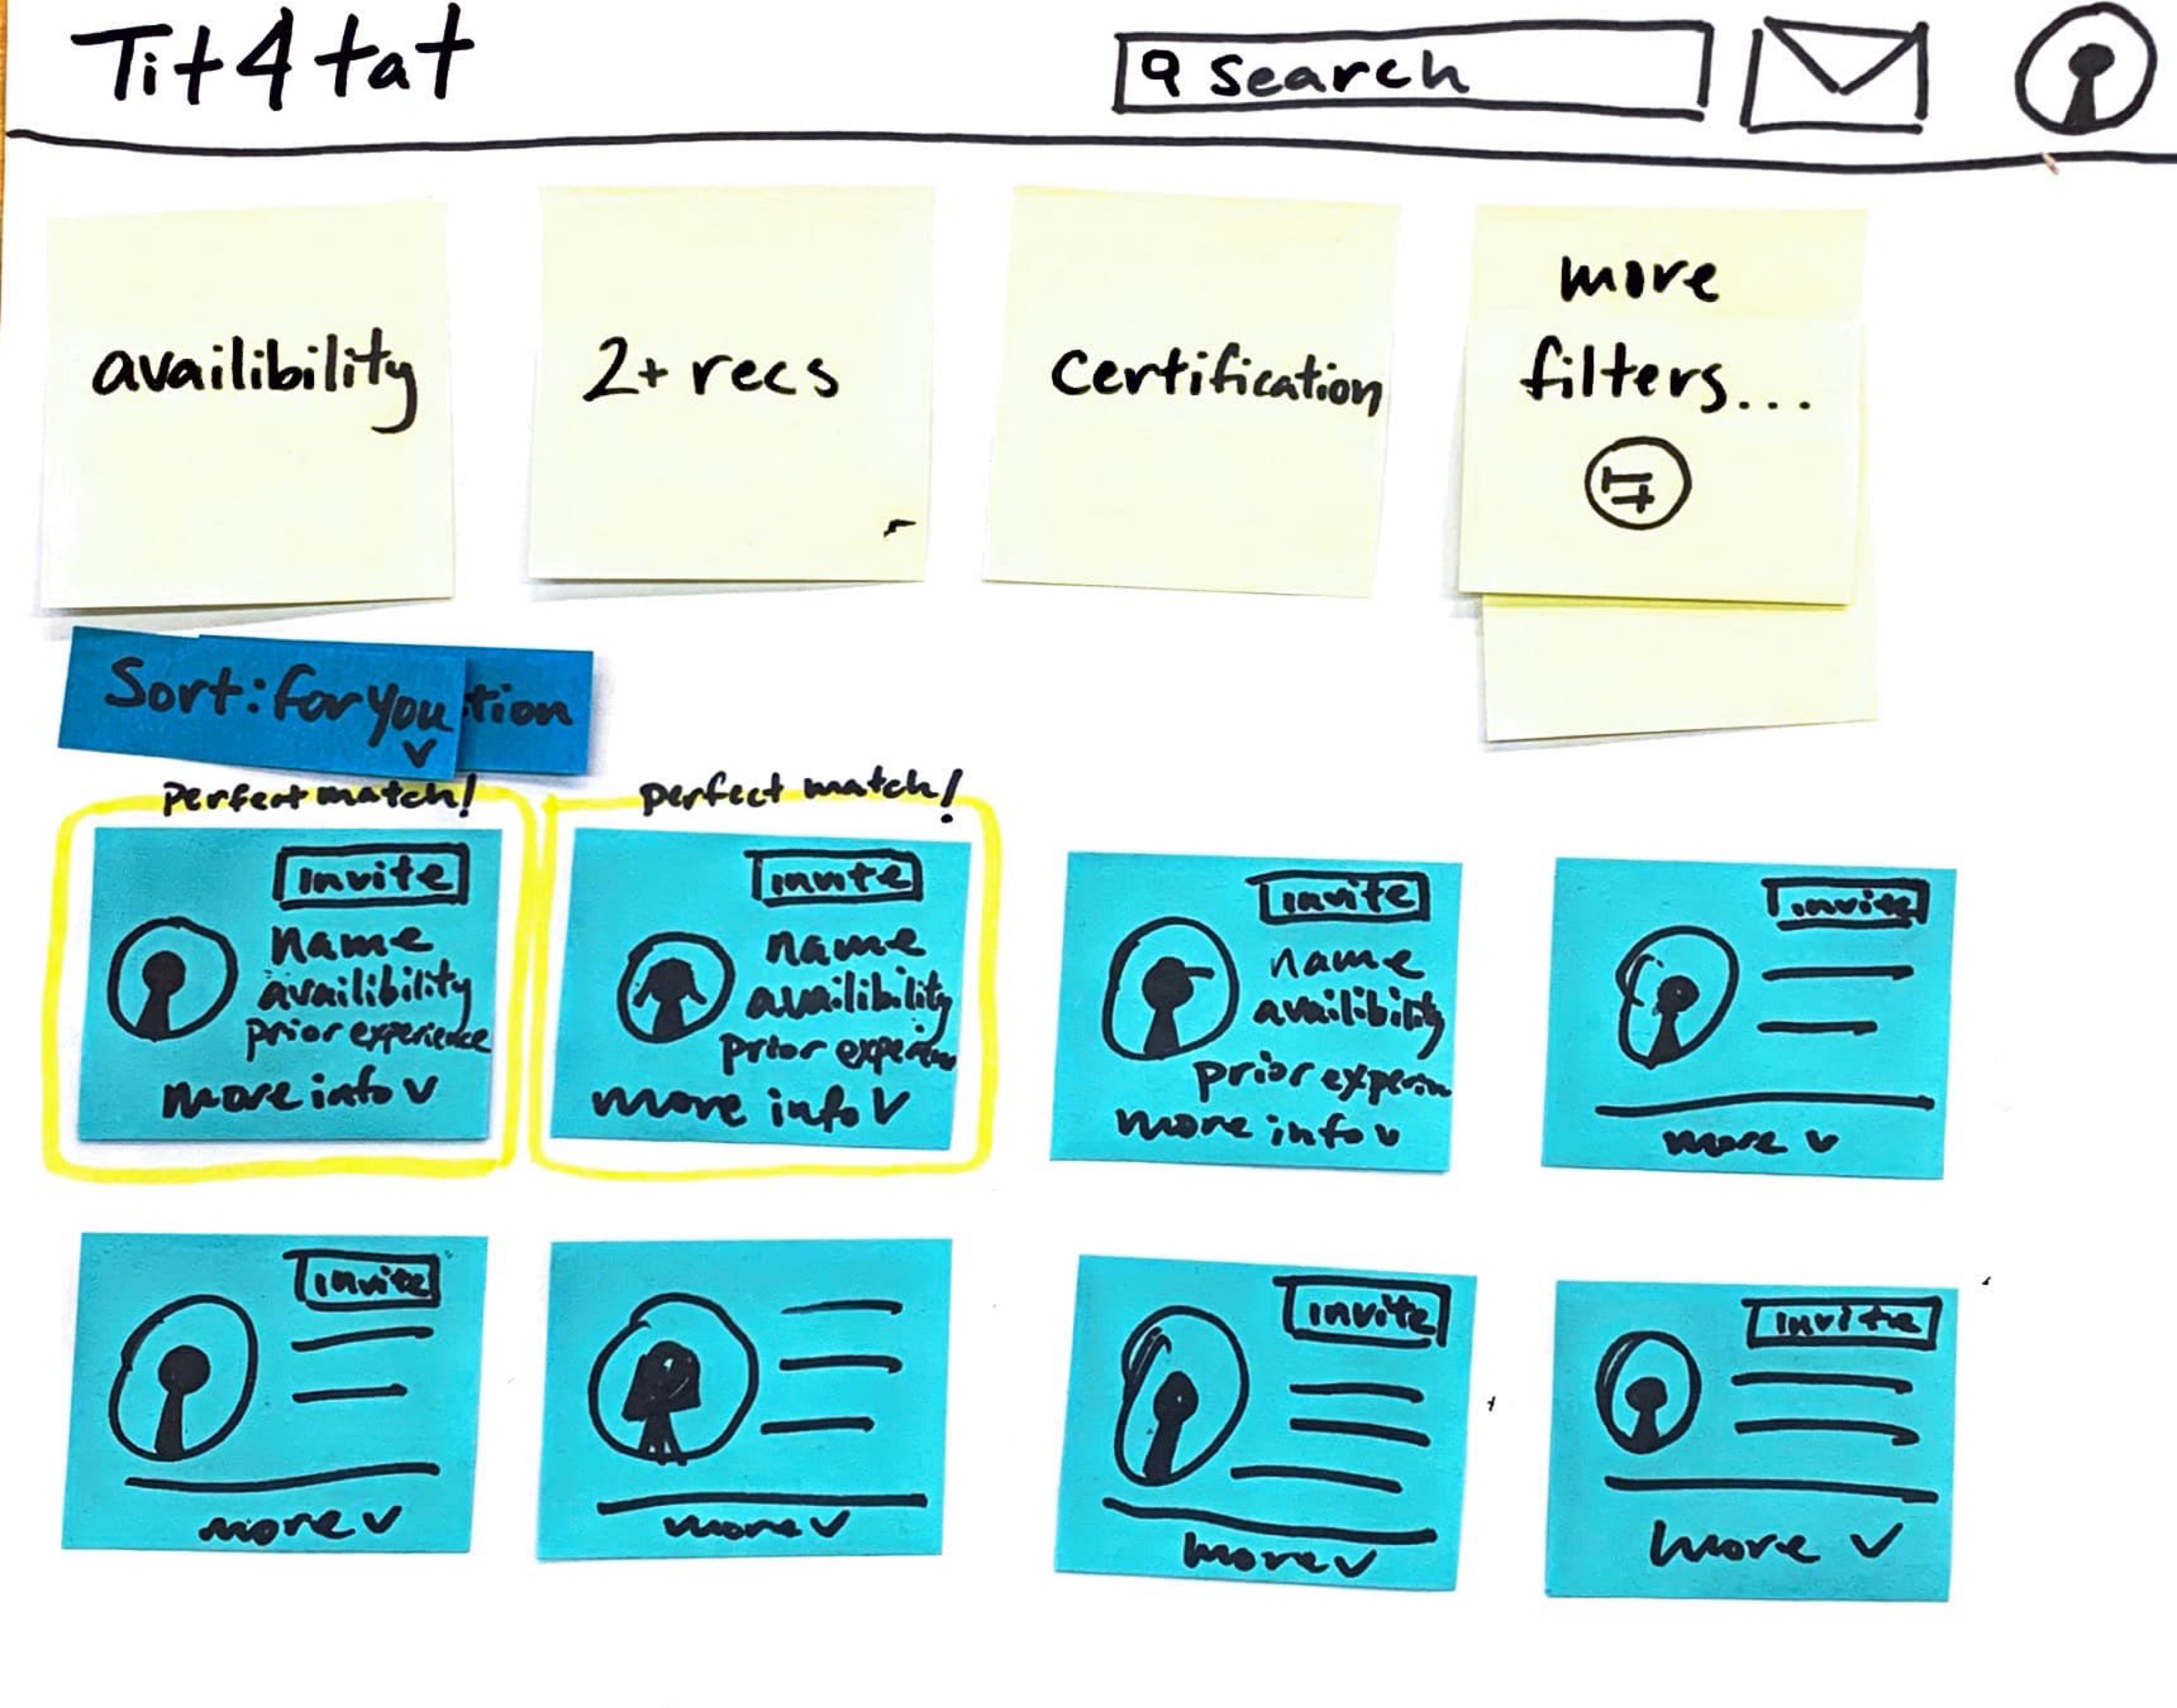 Tit4tat
Search
availibility
2+ recs
Certification
more
filters...
Sort: for you
tion
perfect match!
perfect match!
Invite
name
availibility
prior experience
more info v
invite
name
availibility
prior experien
more info v
invite
name
availibility
prior experien
more info v
invite
more v
invite
more v
more v
invite
more v
invite
more v